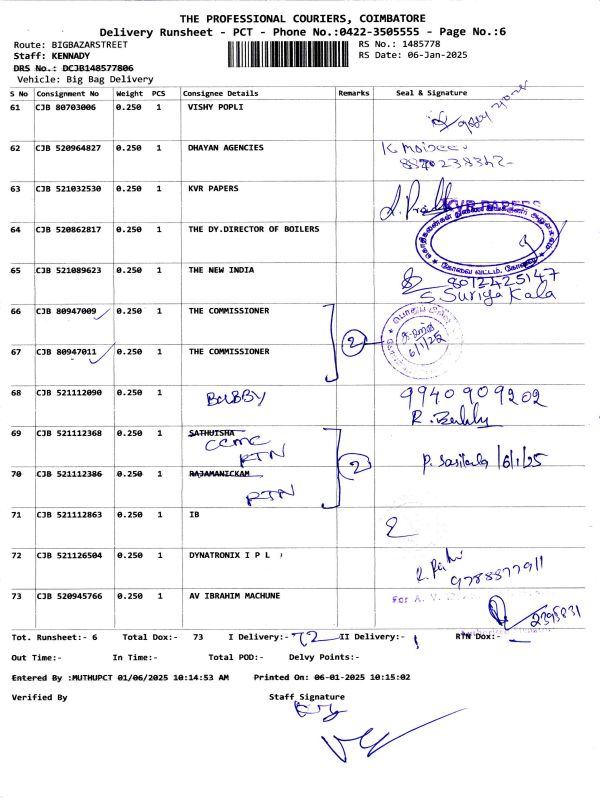 THE PROFESSIONAL COURIERS, COIMBATORE
Delivery Runsheet - PCT - Phone No.:0422-3505555 - Page No.:6
Route: BIGBAZARSTREET RS No.: 1485778
Staff: KENNADY RS Date: 06-Jan-2025
DRS No.: DCJB148577806
Vehicle: Big Bag Delivery
S No Consignment No Weight PCS Consignee Details Remarks Seal & Signature
61 CJB 80703006 0.250 1 VISHY POPLI
62 CJB 520964827 0.250 1 DHAYAN AGENCIES
63 CJB 521032530 0.250 1 KVR PAPERS KVR PAPERS
64 CJB 520862817 0.250 1 THE DY.DIRECTOR OF BOILERS
65 CJB 521089623 0.250 1 THE NEW INDIA 8012425147
S. Suriya Kala
66 CJB 80947009 0.250 1 THE COMMISSIONER
2 6/1/25
67 CJB 80947011 0.250 1 THE COMMISSIONER
68 CJB 521112090 0.250 1 BOBBY 9940909202
69 CJB 521112368 0.250 1 SATHUISHA
CCMC
RTN
2 P. Sasikala 6/1/25
70 CJB 521112386 0.250 1 RAJAMANICKAM
RTN
71 CJB 521112863 0.250 1 IB
72 CJB 521126504 0.250 1 DYNATRONIX I P L
9788877911
73 CJB 520945766 0.250 1 AV IBRAHIM MACHUNE For A. V.
2395831
Tot. Runsheet:- 6 Total Dox:- 73 I Delivery:- 72 II Delivery:- 1 RTN Dox:- -
Out Time:- In Time:- Total POD:- Delvy Points:-
Entered By :MUTHUPCT 01/06/2025 10:14:53 AM Printed On: 06-01-2025 10:15:02
Verified By Staff Signature